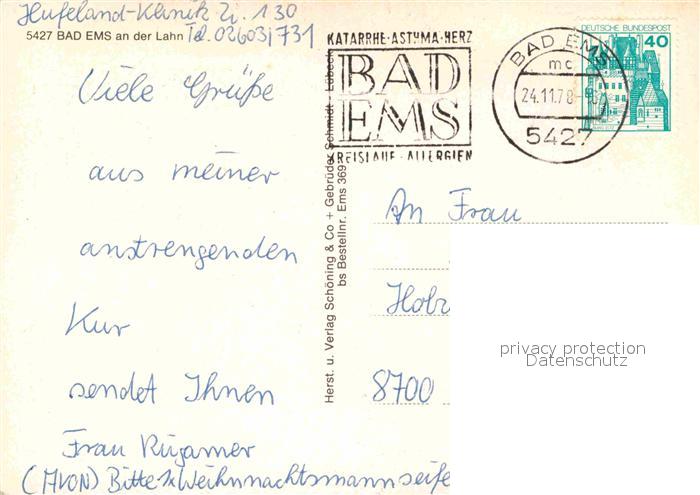 Hufeland-Klinik Zi. 130
5427 BAD EMS an der Lahn Tel. 02603/731
Viele Grüße
aus meiner
anstrengenden
Kur
sendet Ihnen
Frau Rugamer
(AVON) Bitte Weihnachtsmannseife
Herst. u. Verlag Schöning & Co + Gebrüder Schmidt - Lübeck
bs Bestellnr. Ems 369
KATARRHE·ASTHMA·HERZ
BAD
EMS
KREISLAUF·ALLERGIEN
BAD EMS
mc
24.11.78
5427
DEUTSCHE BUNDESPOST
40
An Frau
8700
privacy protection
Datenschutz